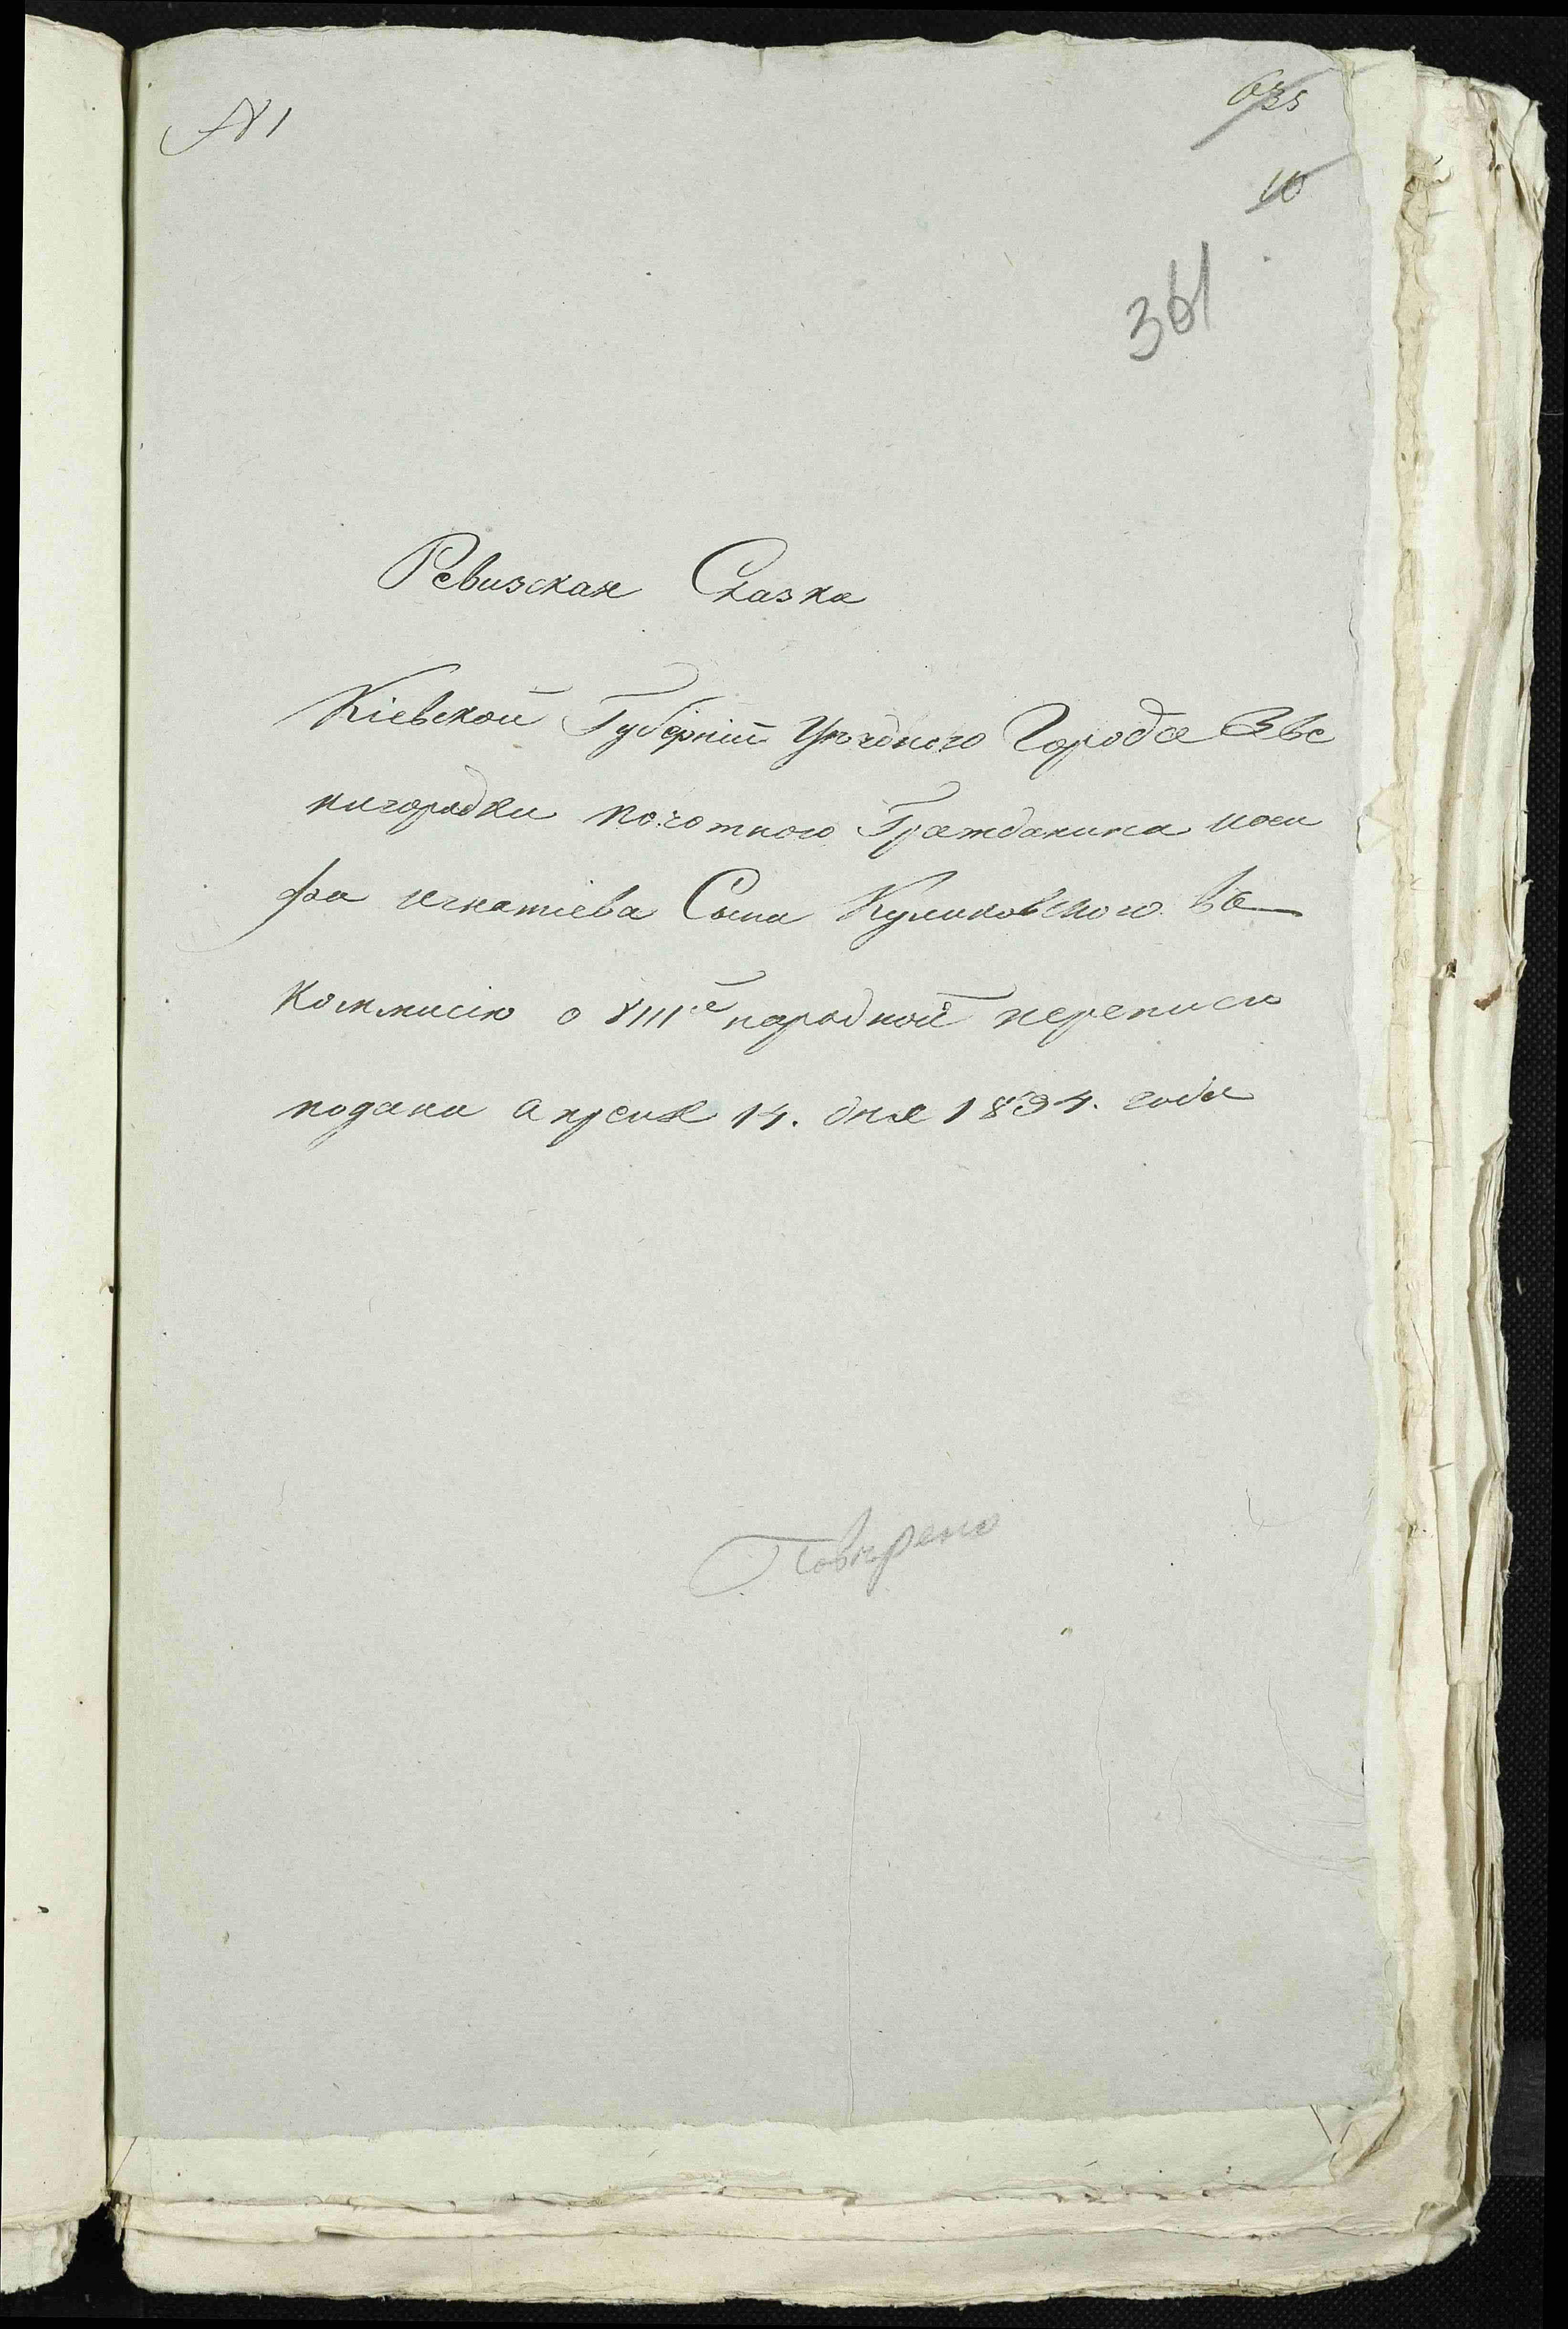 № 1
635
10
361
Ревизская Сказка
Кіевской Губерніи Уѣздного Города Зве
нигородки почотного Гражданина иоси
фа игнатіева Сына Куликовского въ
коммисію о VIII.й народной переписи
подана апреля 14. дня 1834. года
Повѣрено